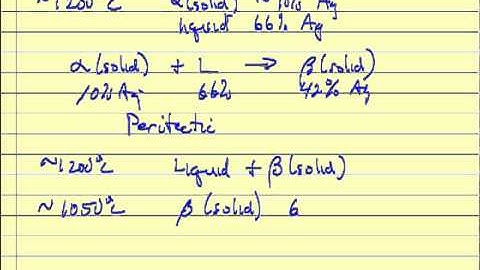 ~1200°C α(solid) ~10% Ag
liquid 66% Ag
α(solid) + L → β(solid)
10% Ag 66% 42% Ag
Peritectic
~1200°C Liquid + β(solid)
~1050°C β(solid) 6